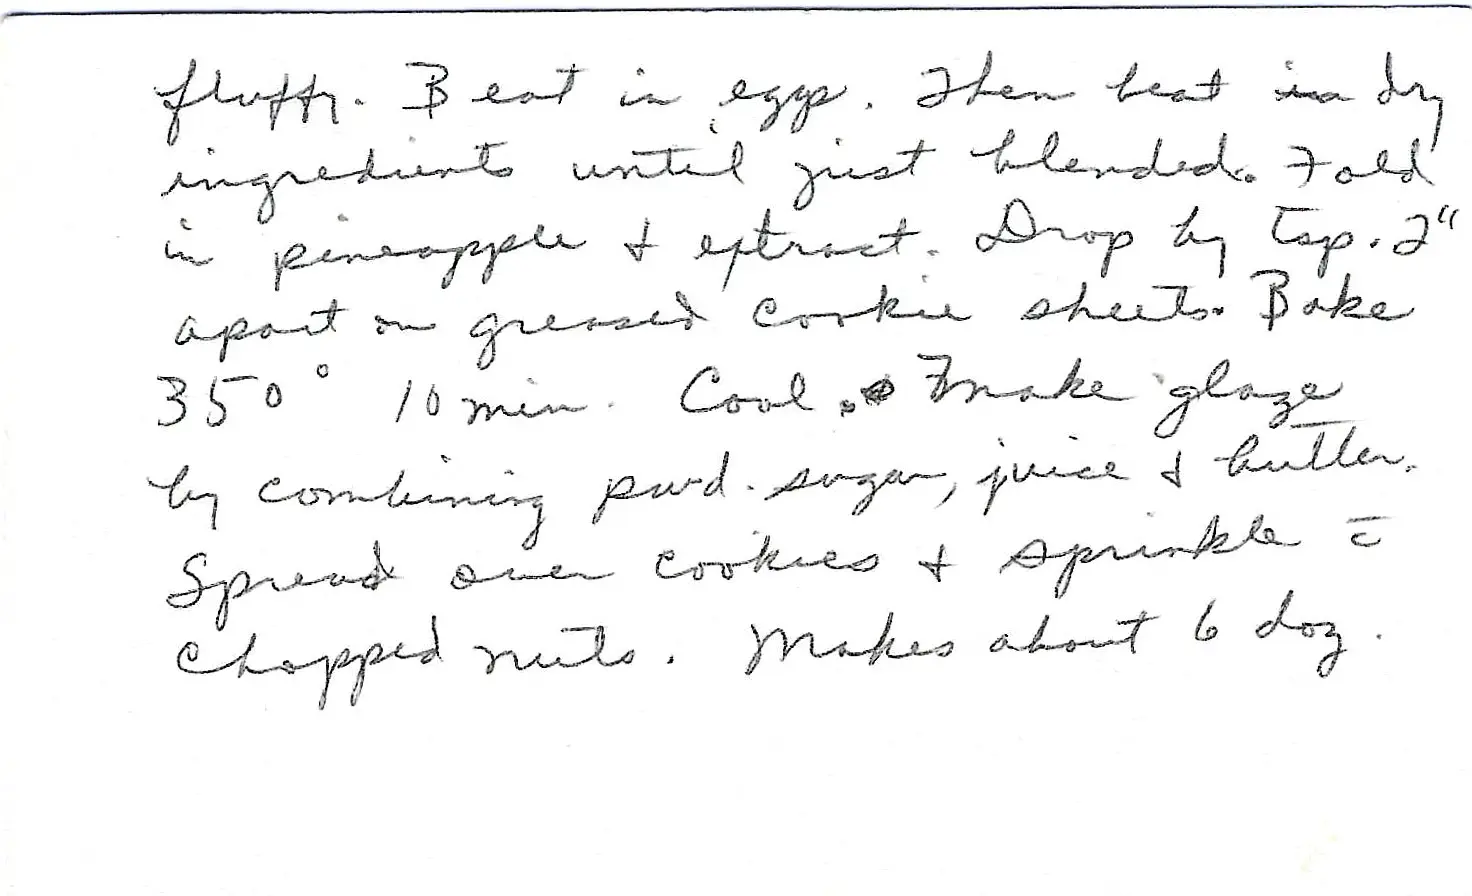 fluffy. Beat in eggs. Then beat in dry
ingredients until just blended. Fold
in pineapple & extract. Drop by tsp. 2"
apart on greased cookie sheets. Bake
350° 10 min. Cool. make glaze
by combining pwd. sugar, juice & butter.
Spread over cookies & sprinkle c̄
chopped nuts. Makes about 6 doz.